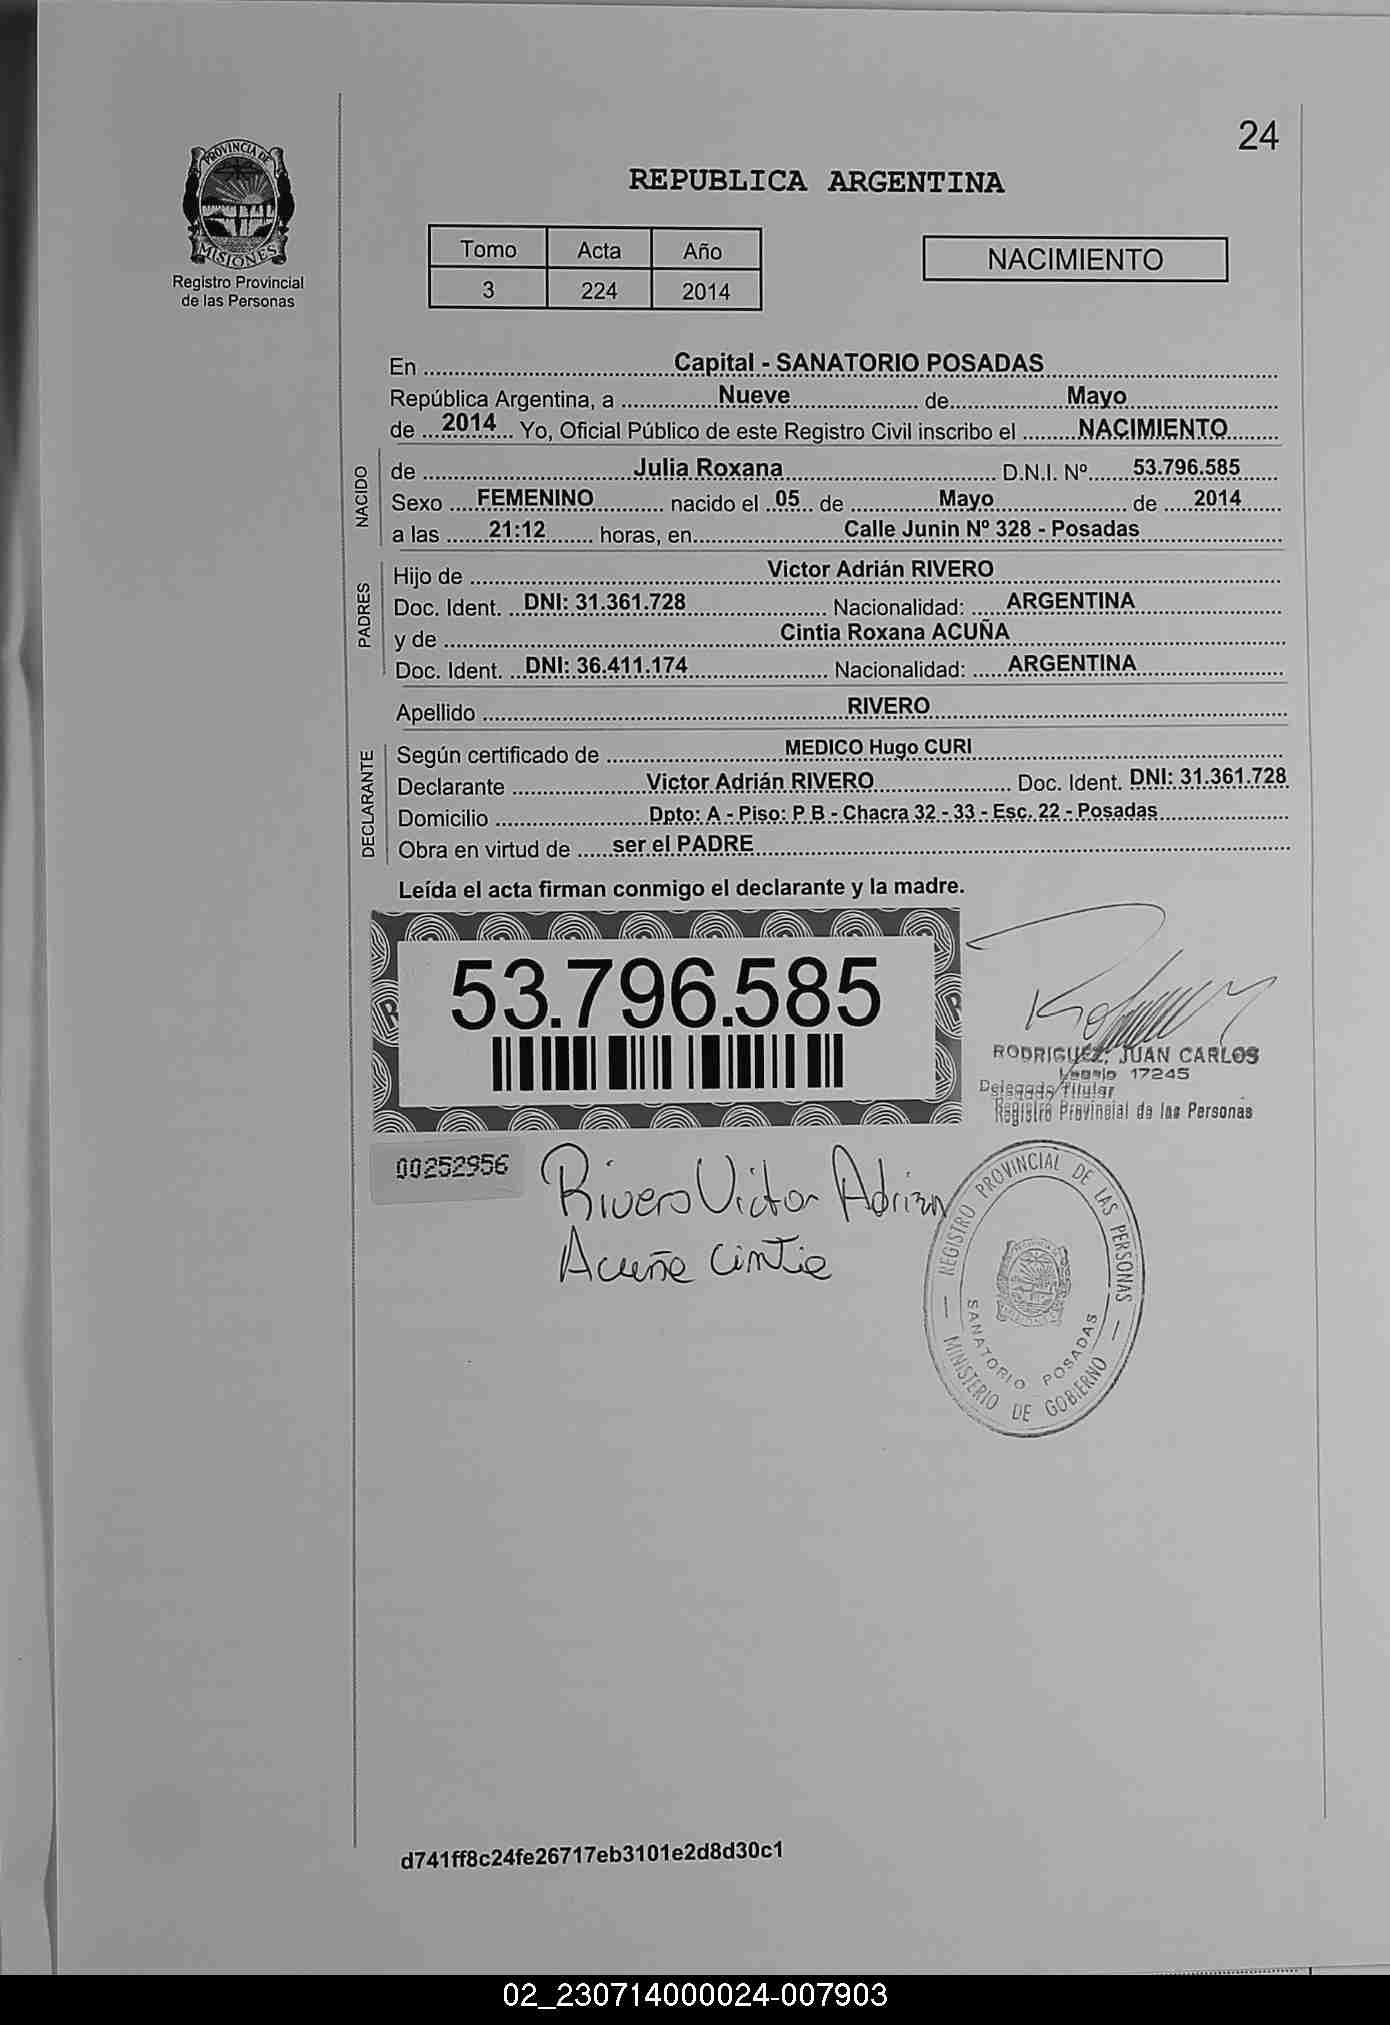 24
PROVINCIA DE
MISIONES
Registro Provincial
de las Personas
REPUBLICA ARGENTINA
Tomo Acta Año
3 224 2014
NACIMIENTO
En Capital - SANATORIO POSADAS
República Argentina, a Nueve de Mayo
de 2014 Yo, Oficial Público de este Registro Civil inscribo el NACIMIENTO
NACIDO
de Julia Roxana D.N.I. Nº 53.796.585
Sexo FEMENINO nacido el 05 de Mayo de 2014
a las 21:12 horas, en Calle Junin Nº 328 - Posadas
PADRES
Hijo de Victor Adrián RIVERO
Doc. Ident. DNI: 31.361.728 Nacionalidad: ARGENTINA
y de Cintia Roxana ACUÑA
Doc. Ident. DNI: 36.411.174 Nacionalidad: ARGENTINA
Apellido RIVERO
DECLARANTE
Según certificado de MEDICO Hugo CURI
Declarante Victor Adrián RIVERO Doc. Ident. DNI: 31.361.728
Domicilio Dpto: A - Piso: P B - Chacra 32 - 33 - Esc. 22 - Posadas
Obra en virtud de ser el PADRE
Leída el acta firman conmigo el declarante y la madre.
53.796.585
RODRIGUEZ, JUAN CARLOS
Legajo 17245
Delegado Titular
Registro Provincial de las Personas
00252956
Rivero Victor Adrian
Acuña Cintia
REGISTRO PROVINCIAL DE LAS PERSONAS
SANATORIO POSADAS
MINISTERIO DE GOBIERNO
d741ff8c24fe26717eb3101e2d8d30c1
02_230714000024-007903